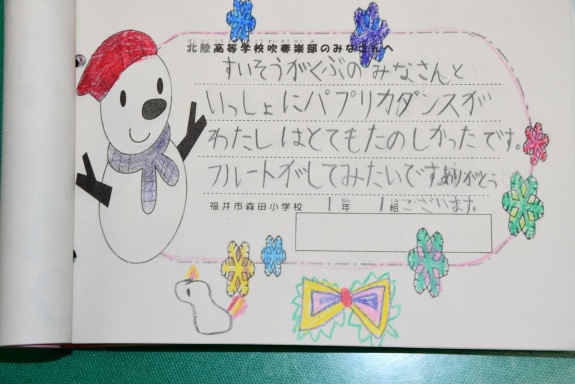 北陸高等学校吹奏楽部のみなさんへ
すいそうがくぶの みなさんと
いっしょにパプリカダンスが
わたしはとてもたのしかったです。
フルートがしてみたいです。ありがとう
福井市森田小学校 1年 1組ございます。